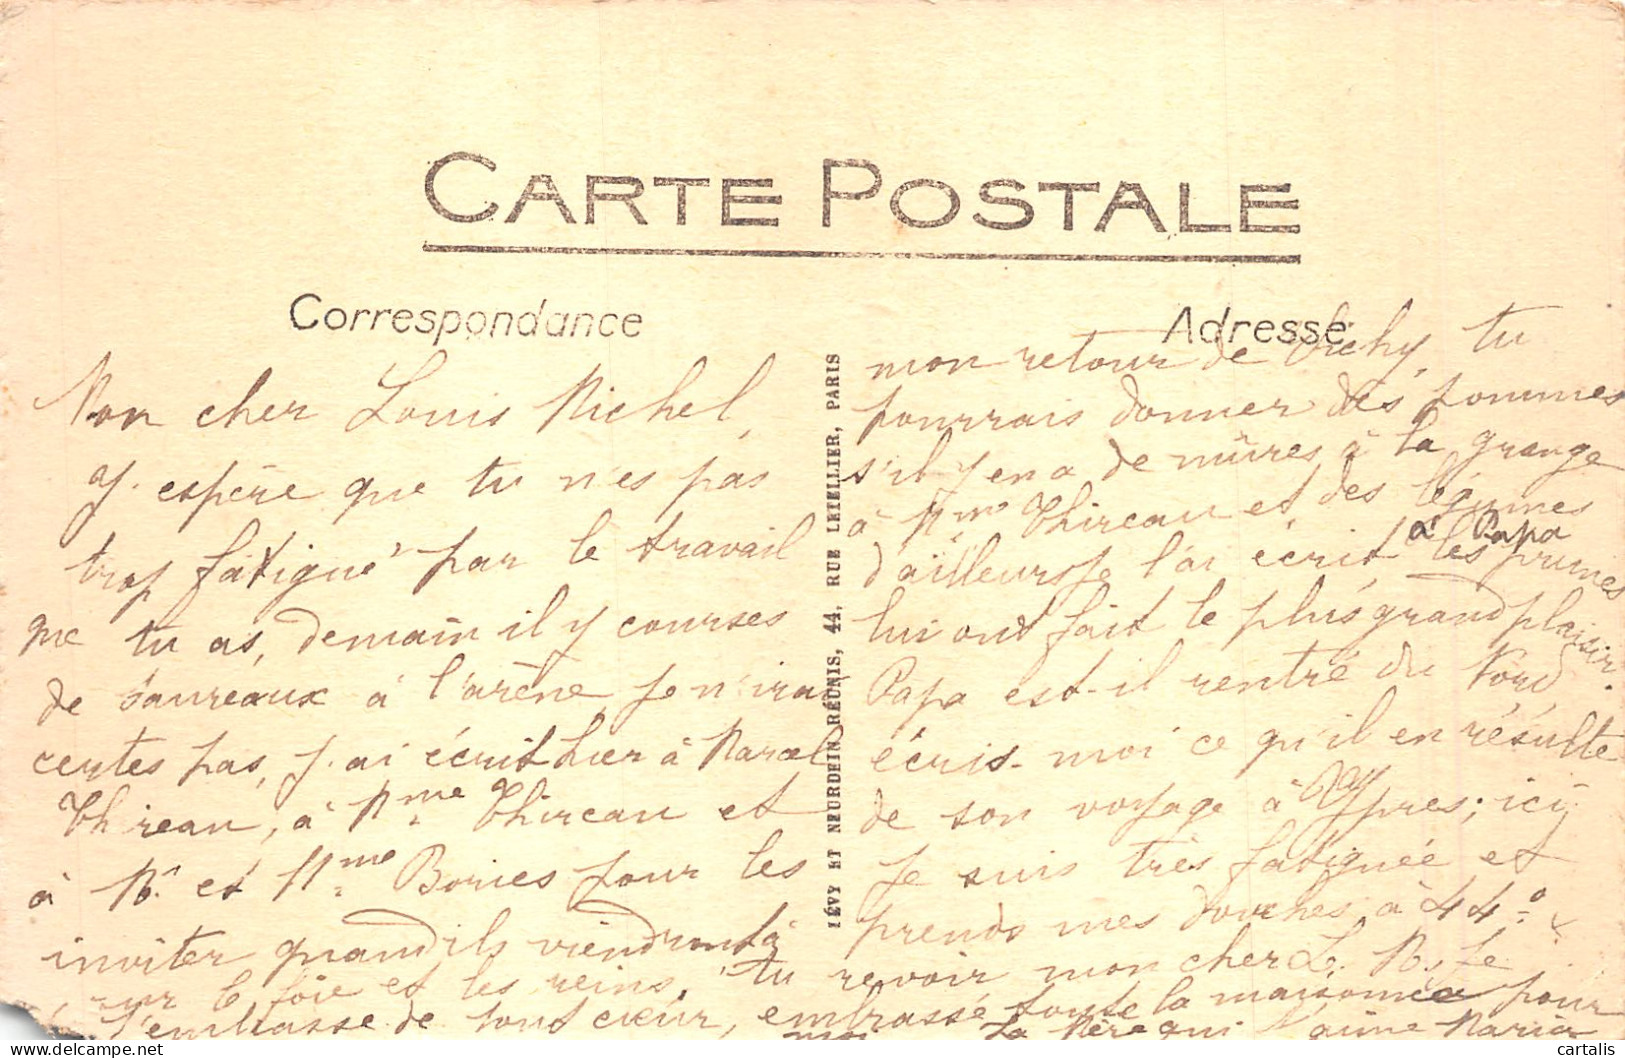 CARTE POSTALE
Correspondance
Adresse
Mon cher Louis Michel,
J'espère que tu n'es pas
trop fatigué par le travail
que tu as, demain il y courses
de taureaux à l'arène je n'irai
certes pas, j'ai écrit hier à Marcel
Thireau, à Mme Thireau et
à Mr et Mme Bories pour les
inviter quand ils viendront à
mon retour de Vichy, tu
pourrais donner des pommes
s'il y en a de mûres à la grange
à Mme Thireau et des légumes
d'ailleurs je l'ai écrit à Papa les prunes
lui ont fait le plus grand plaisir.
Papa est-il rentré du Nord
écris-moi ce qu'il en résulte
de son voyage à Ypres; ici
je suis très fatiguée et
prends mes douches à 44°
sur le foie et les reins, tu revoir mon cher L. M. je
t'embrasse de tout cœur, embrasse toute la maisonnée pour
moi La Mère qui t'aime Maria
LÉVY ET NEURDEIN RÉUNIS, 44, RUE LETELLIER, PARIS
cartalis